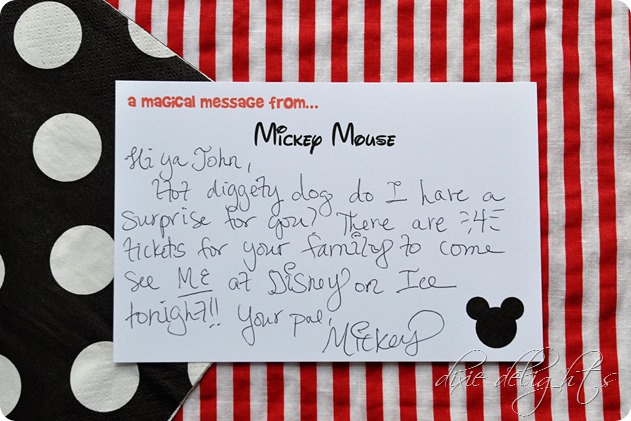 a magical message from...
Mickey Mouse
Hi ya John,
Hot diggety dog do I have a
surprise for you! There are 4
tickets for your family to come
see ME at Disney on Ice
tonight!! Your pal,
Mickey
dixie delights